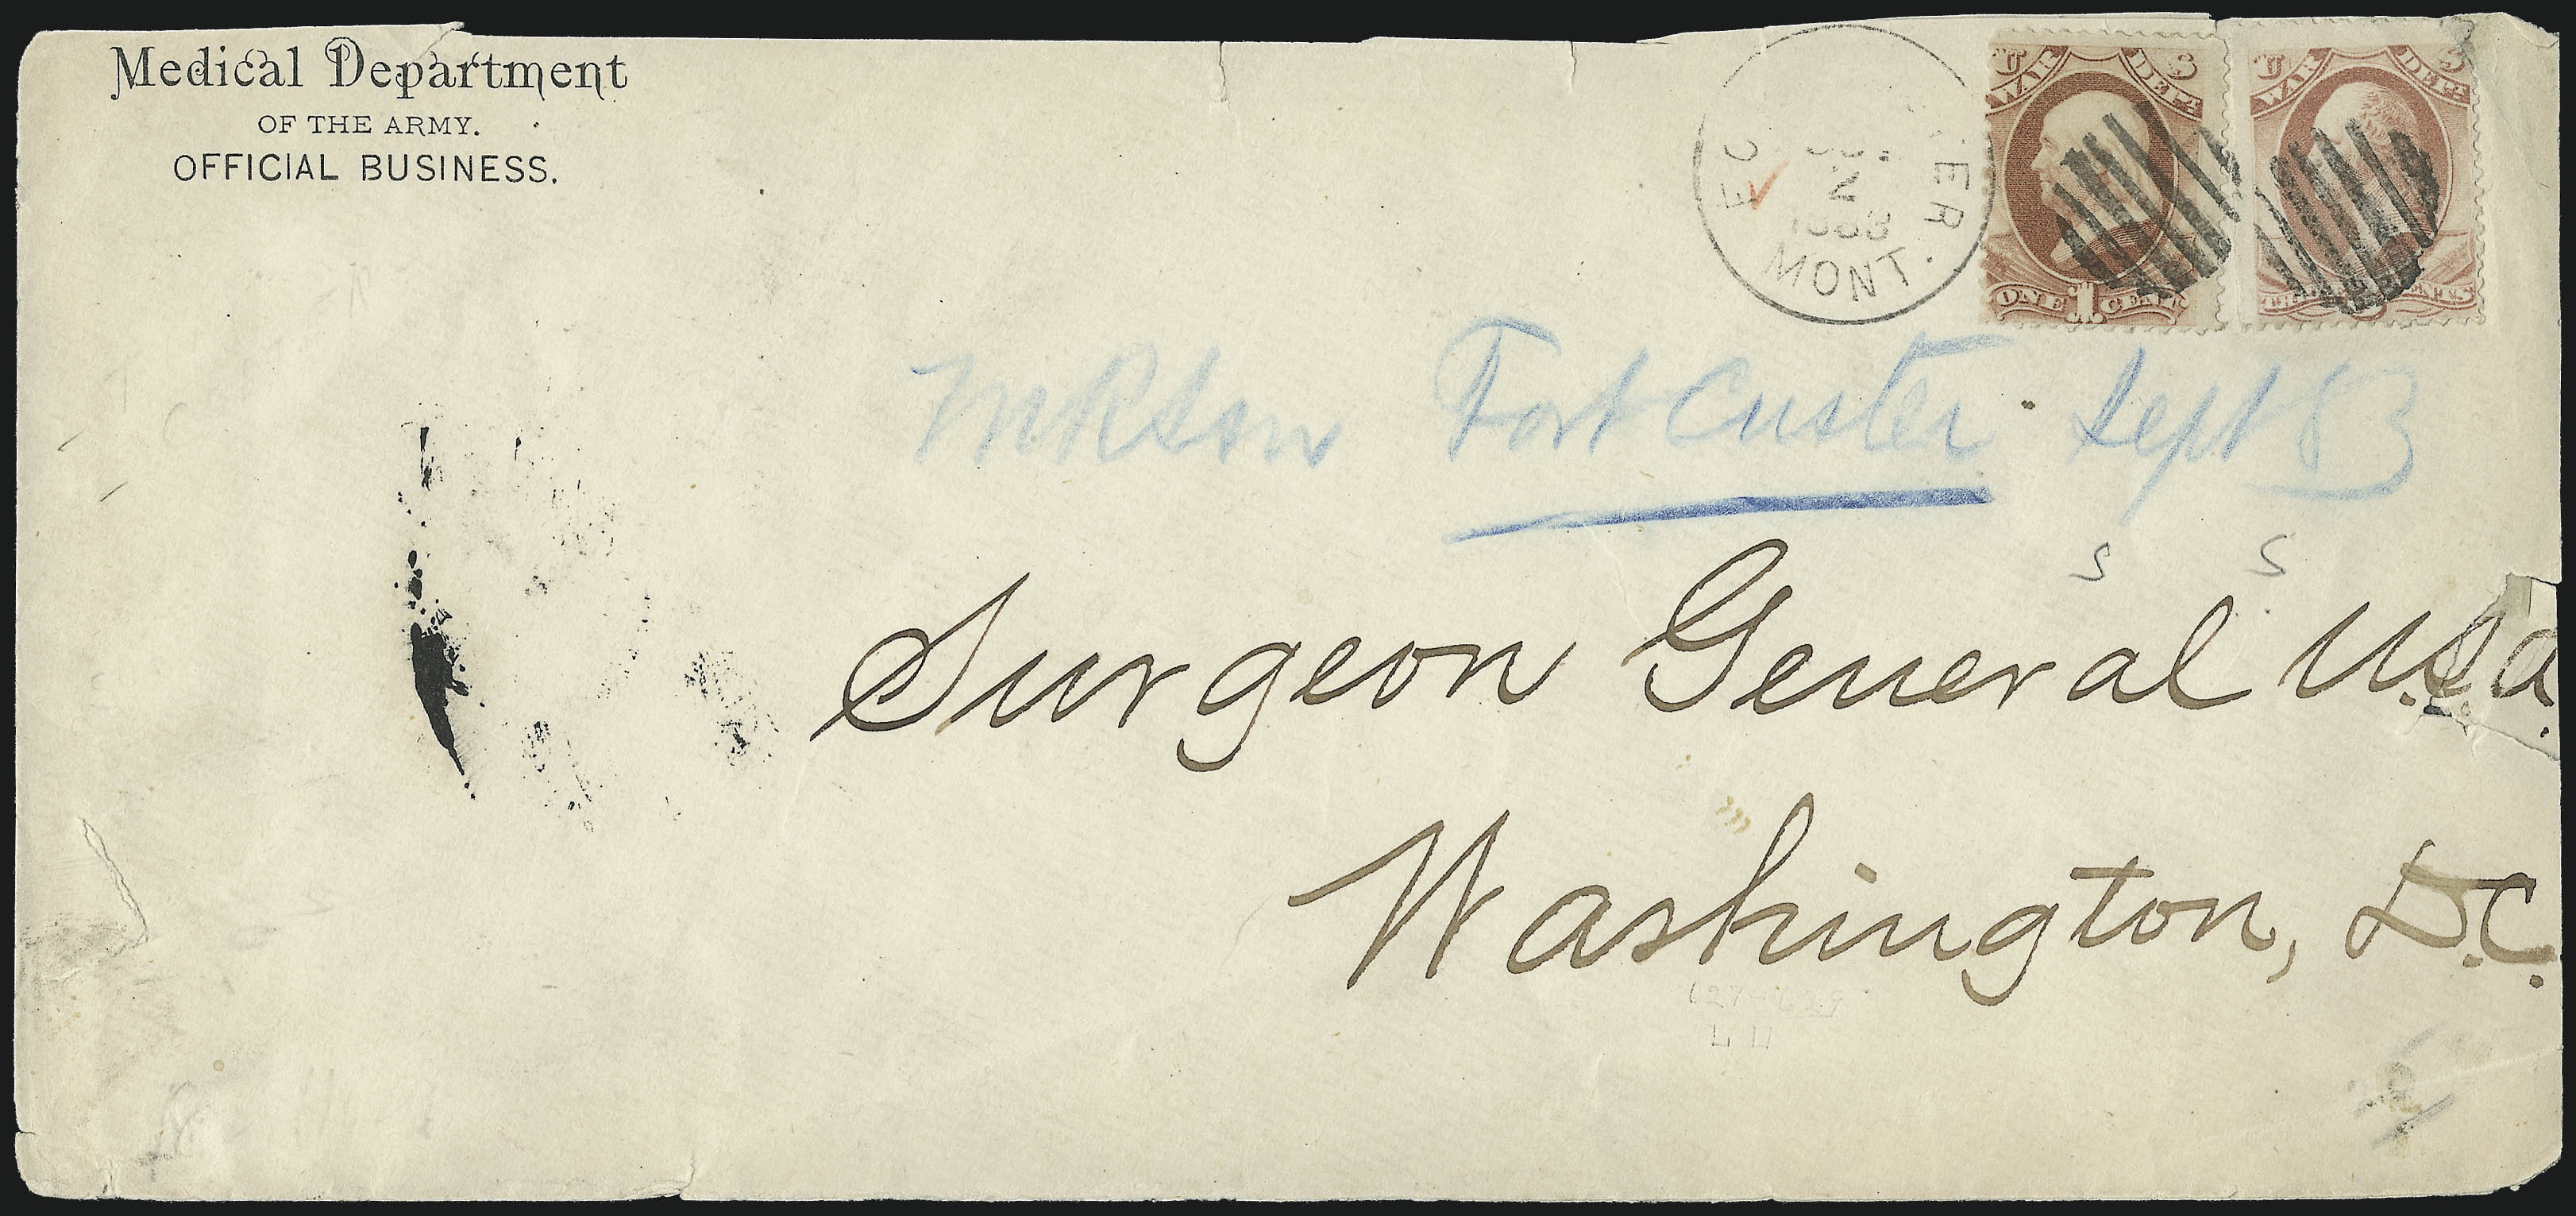 Medical Department
OF THE ARMY.
OFFICIAL BUSINESS.
MONT.
U S
WAR DEPT
ONE 1 CENT
U S
WAR DEPT
Fort Custer Sept 83
S S
Surgeon General U.S.A.
Washington, D.C.